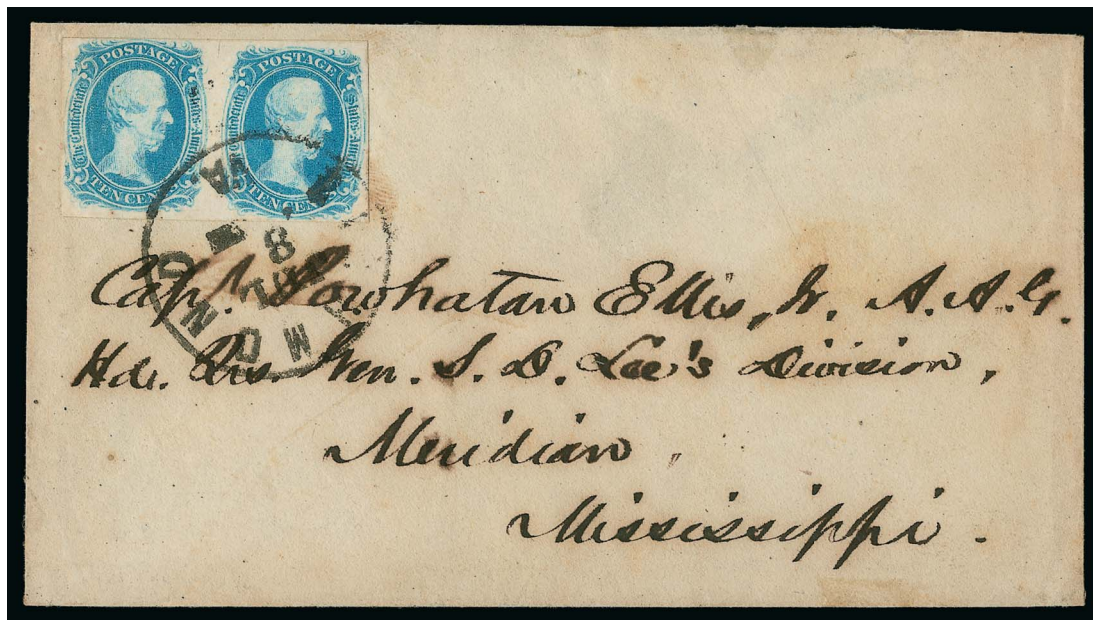 POSTAGE
The Confederate States of America
TEN CENTS
POSTAGE
The Confederate States of America
TEN CENTS
VA.
8
MOND
Capt. Powhatan Ellis, Jr. A. A. G.
Hd. Qrs. Gen. S. D. Lee's Division,
Meridian,
Mississippi.